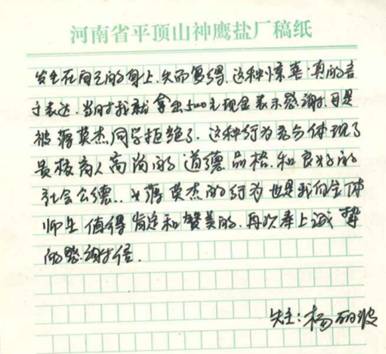 河南省平顶山神鹰盐厂稿纸
发生在自己的身上,失而复得,这种惊喜,真的言
于表达,当时我就拿出500元现金表示感谢,可是
被蒋英杰同学拒绝了,这种行为充分体现了
最高尚的道德品格,和良好的
社会公德。蒋英杰的行为也是我们全体
师生值得肯定和赞美的,再次奉上诚挚
的感谢信。
失主:杨丽波